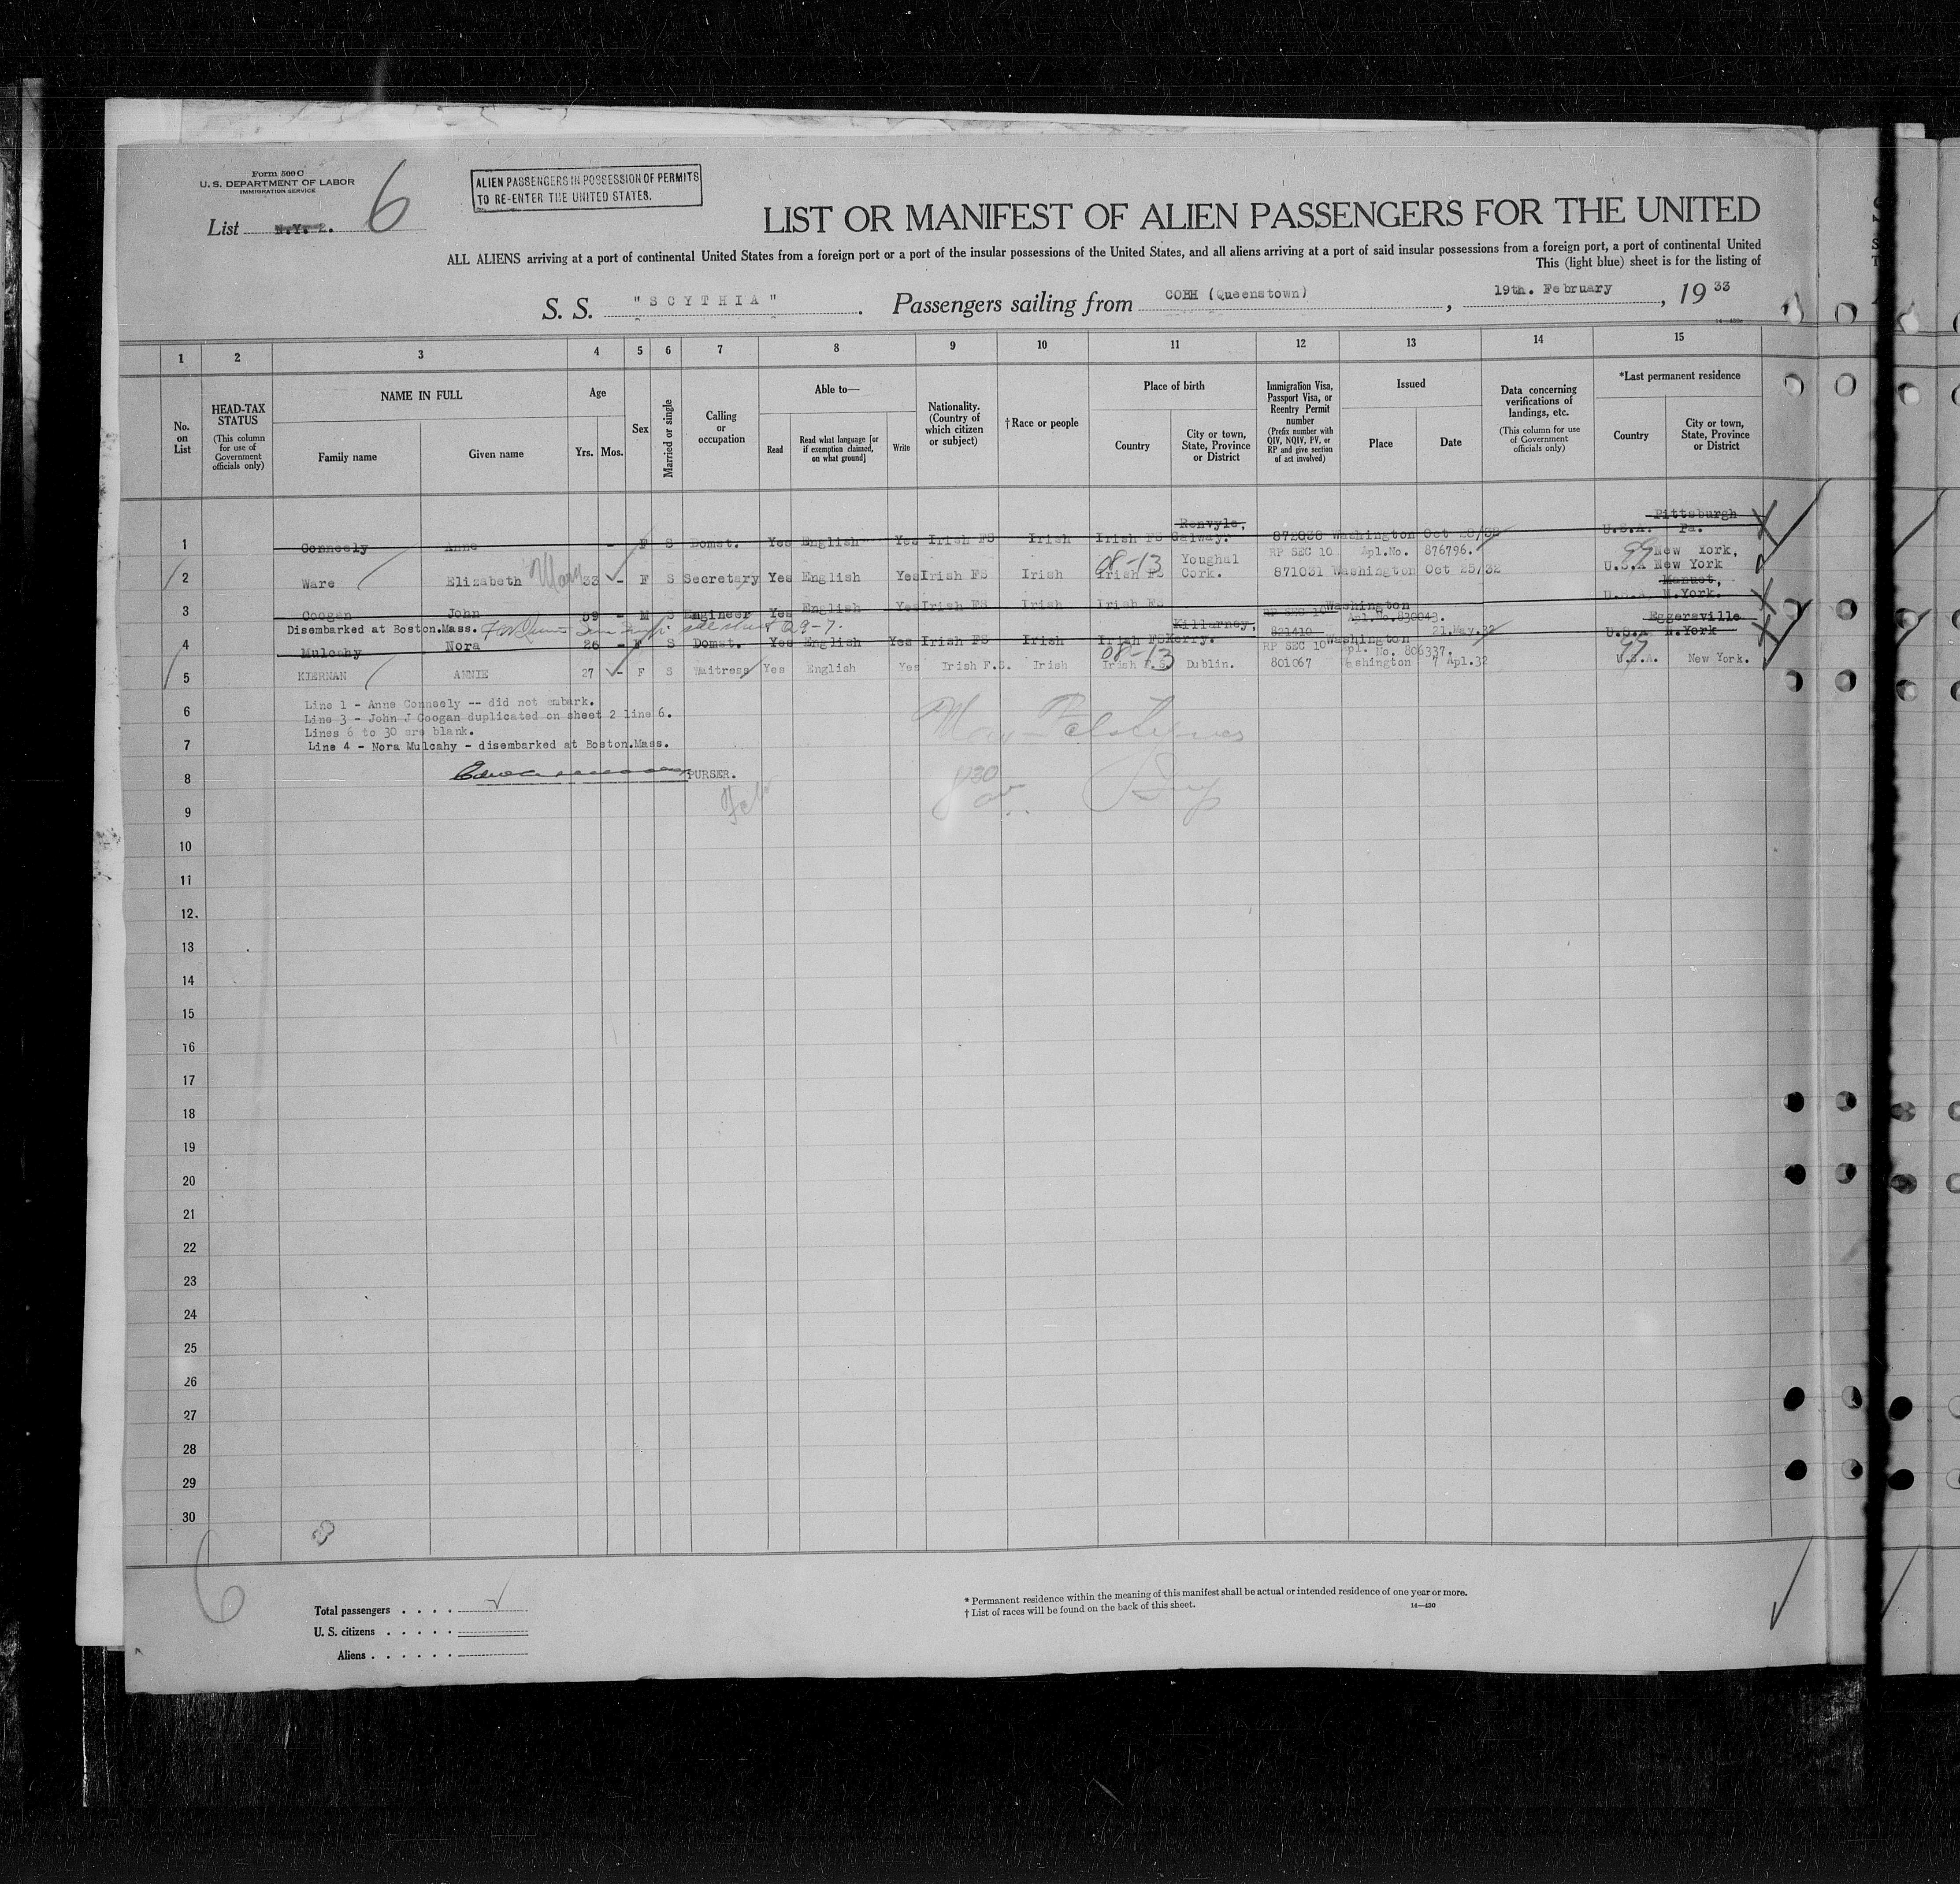 Form 500 C
U. S. DEPARTMENT OF LABOR
IMMIGRATION SERVICE
List N.Y. 2. 6
ALIEN PASSENGERS IN POSSESSION OF PERMITS
TO RE-ENTER THE UNITED STATES.
LIST OR MANIFEST OF ALIEN PASSENGERS FOR THE UNITED
ALL ALIENS arriving at a port of continental United States from a foreign port or a port of the insular possessions of the United States, and all aliens arriving at a port of said insular possessions from a foreign port, a port of continental United
This (light blue) sheet is for the listing of
S. S. "SCYTHIA". Passengers sailing from COBH (Queenstown), 19th. February, 1933
1 2 3 4 5 6 7 8 9 10 11 12 13 14 15
No. on List
HEAD-TAX STATUS (This column for use of Government officials only)
NAME IN FULL
Family name Given name
Age
Yrs. Mos.
Sex
Married or single
Calling or occupation
Able to—
Read Read what language [or if exemption claimed, on what ground] Write
Nationality. (Country of which citizen or subject)
†Race or people
Place of birth
Country City or town, State, Province or District
Immigration Visa, Passport Visa, or Reentry Permit number (Prefix number with QIV, NQIV, PV, or RP and give section of act involved)
Issued
Place Date
Data concerning verifications of landings, etc. (This column for use of Government officials only)
*Last permanent residence
Country City or town, State, Province or District
1 Conneely Anne - F S Domst. Yes English Yes Irish FS Irish Irish FS Renvyle, Galway. 872038 Washington Oct 28/32 U.S.A. Pittsburgh Pa.
RP SEC 10 Apl.No. 876796.
2 Ware Elizabeth Mary 33 - F S Secretary Yes English Yes Irish FS Irish 08-13 Irish FS Youghal Cork. 871031 Washington Oct 25/32 99 U.S.A New York, New York
3 Coogan John 59 - M S Engineer Yes English Yes Irish FS Irish Irish FS RP SEC 10 Washington Apl.No.830043. U.S.A. Nanuet, N.York.
Disembarked at Boston.Mass. 29-7.
4 Mulcahy Nora 26 - F S Domst. Yes English Yes Irish FS Irish Irish FS Killarney, Kerry. 821410 Washington 21.May.32 U.S.A Eggersville N.York
RP SEC 10 Apl. No. 806337.
5 KIERNAN ANNIE 27 - F S Waitress Yes English Yes Irish F.S. Irish 08-13 Irish F.S. Dublin. 801067 Washington 7 Apl.32 99 U.S.A. New York.
6 Line 1 - Anne Conneely -- did not embark.
Line 3 - John J Coogan duplicated on sheet 2 line 6.
Lines 6 to 30 are blank.
7 Line 4 - Nora Mulcahy - disembarked at Boston.Mass.
8 PURSER.
9
10
11
12.
13
14
15
16
17
18
19
20
21
22
23
24
25
26
27
28
29
30
6
Total passengers
U. S. citizens
Aliens
* Permanent residence within the meaning of this manifest shall be actual or intended residence of one year or more.
† List of races will be found on the back of this sheet. 14—430